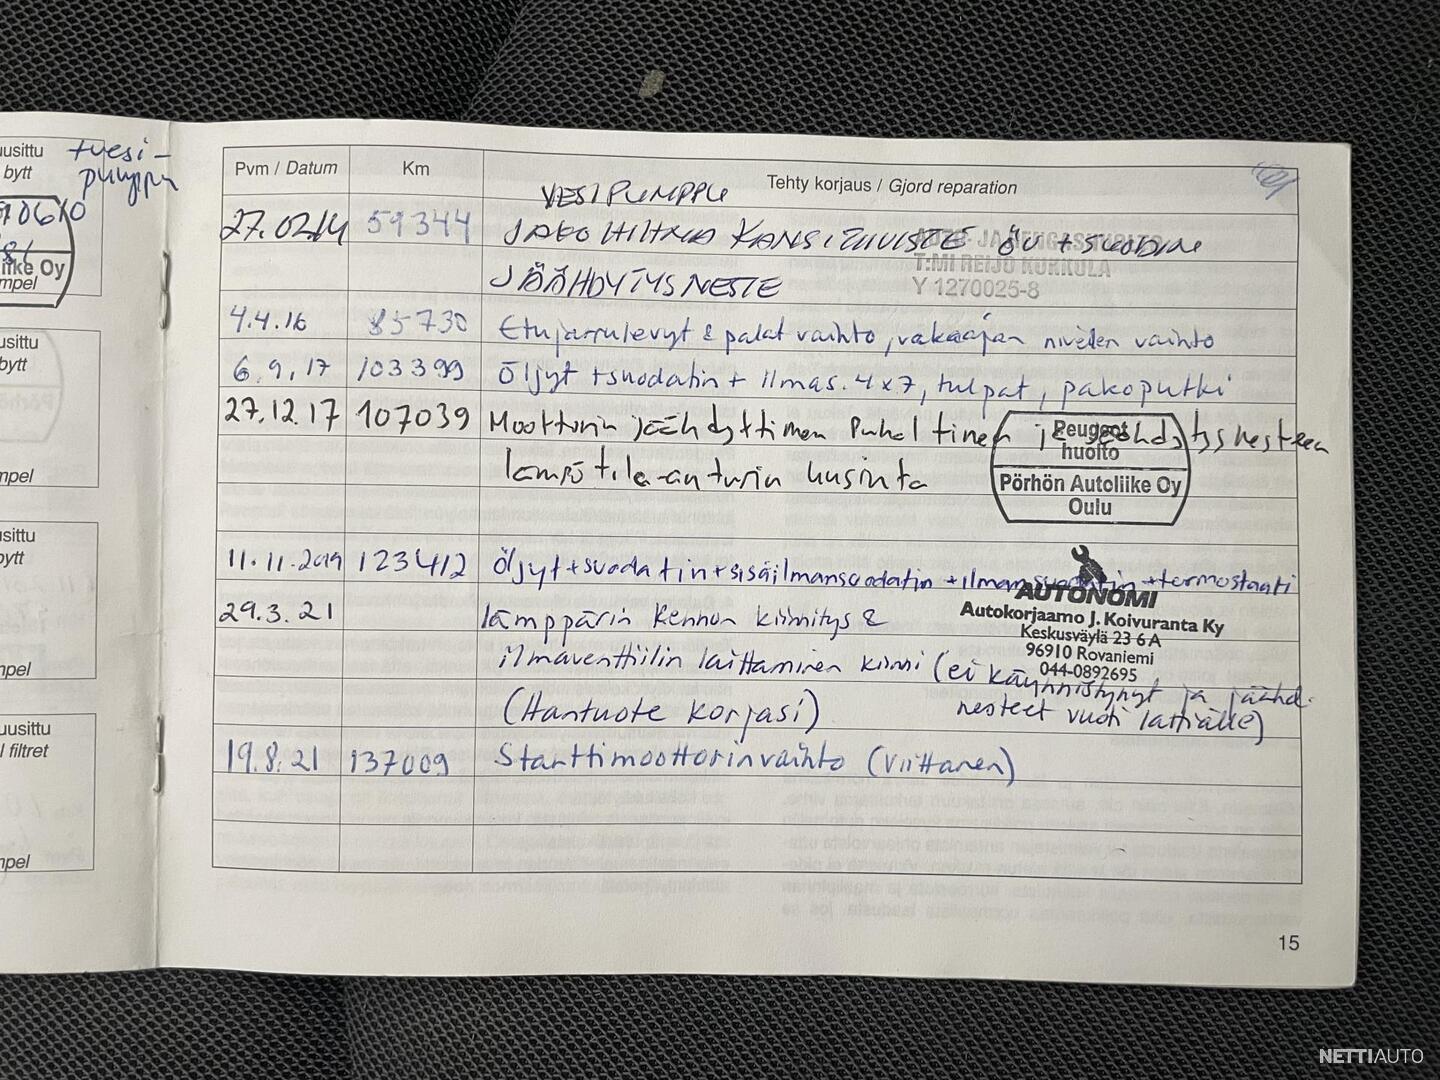 uusittu
bytt
+vesi-
pumppu
70610
iike Oy
mpel
usittu
bytt
mpel
usittu
bytt
mpel
uusittu
l filtret
mpel
Pvm / Datum
Km
Tehty korjaus / Gjord reparation
VESIPUMPPU
27.02.14 59344 JAKOHIHNA KANSITIIVISTE ÖV + SUODIN
T:MI REIJO KUKKULA
Y 1270025-8
JÄÄHDYTYSNESTE
4.4.16 85730 Etujarrulevyt & palat vaihto, vakaajan nivelen vaihto
6.9.17 103399 Öljyt + suodatin + ilmas. 4x7, tulpat, pakoputki
27.12.17 107039 Moottorin jäähdyttimen puhaltimen ja jäähdytysnesteen
lämpötila-anturin uusinta
Peugeot
huolto
Pörhön Autoliike Oy
Oulu
11.11.2019 123412 Öljyt+suodatin+sisäilmansuodatin +ilmansuodatin +termostaatti
AUTONOMI
Autokorjaamo J. Koivuranta Ky
Keskusväylä 23 6 A
96910 Rovaniemi
044-0892695
29.3.21 lämppärin kennon kiinnitys &
ilmaventtiilin laittaminen kiinni (ei käynnistynyt ja jäähd.
nesteet vuoti lattialle)
(Hantuote korjasi)
19.8.21 137009 Starttimoottorin vaihto (Viittanen)
15
NETTIAUTO